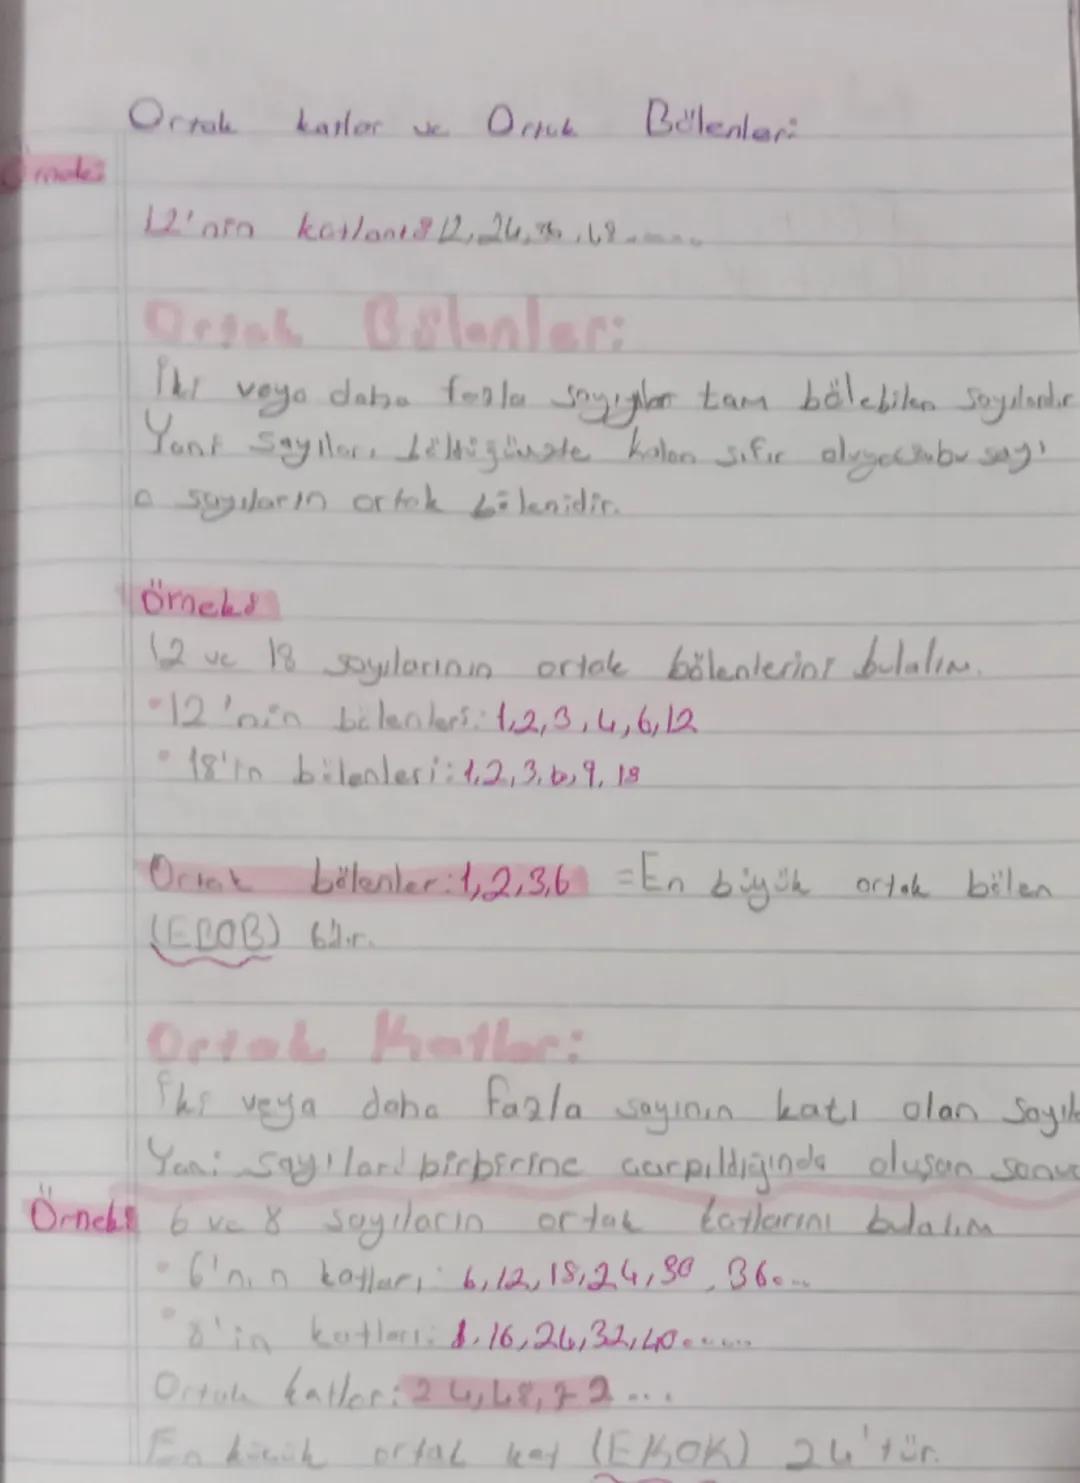 Ortak katlar ve Ortak Bölenler:
Örnek:
12'nin katları: 12, 24, 36, 48.....
Ortak Bölenler:
İki veya daha fazla sayıyı tam bölebilen sayılardır
Yani sayıları böldüğünde kalan sıfır oluyorsa bu sayı
o sayıların ortak bölenidir.
Örnek:
12 ve 18 sayılarının ortak bölenlerini bulalım.
•12'nin bölenleri: 1,2,3,4,6,12
•18'in bölenleri: 1,2,3,6,9,18
Ortak bölenler: 1,2,3,6 = En büyük ortak bölen
(EBOB) 6'dır.
Ortak Katlar:
İki veya daha fazla sayının katı olan
Yani sayılar birbirine çarpıldığında oluşan
Örnek: 6 ve 8 sayıların ortak katlarını bulalım
•6'nın katları: 6,12,18,24,30,36...
•8'in katları: 8,16,24,32,40......
Ortak katlar: 24,48,72...
En küçük ortak kat (EKOK) 24'tür.